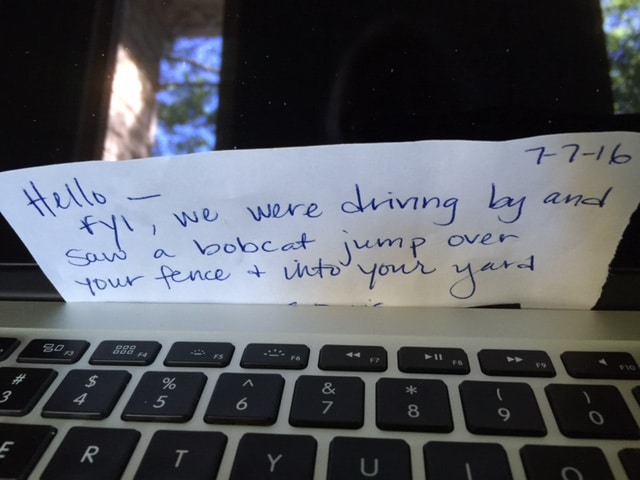 7-7-16
Hello —
fyi, we were driving by and
saw a bobcat jump over
your fence + into your yard
F3 F4 F5 F6 F7 F8 F9 F10
# $ % ^ & * ( )
3 4 5 6 7 8 9 0
E R T Y U I O